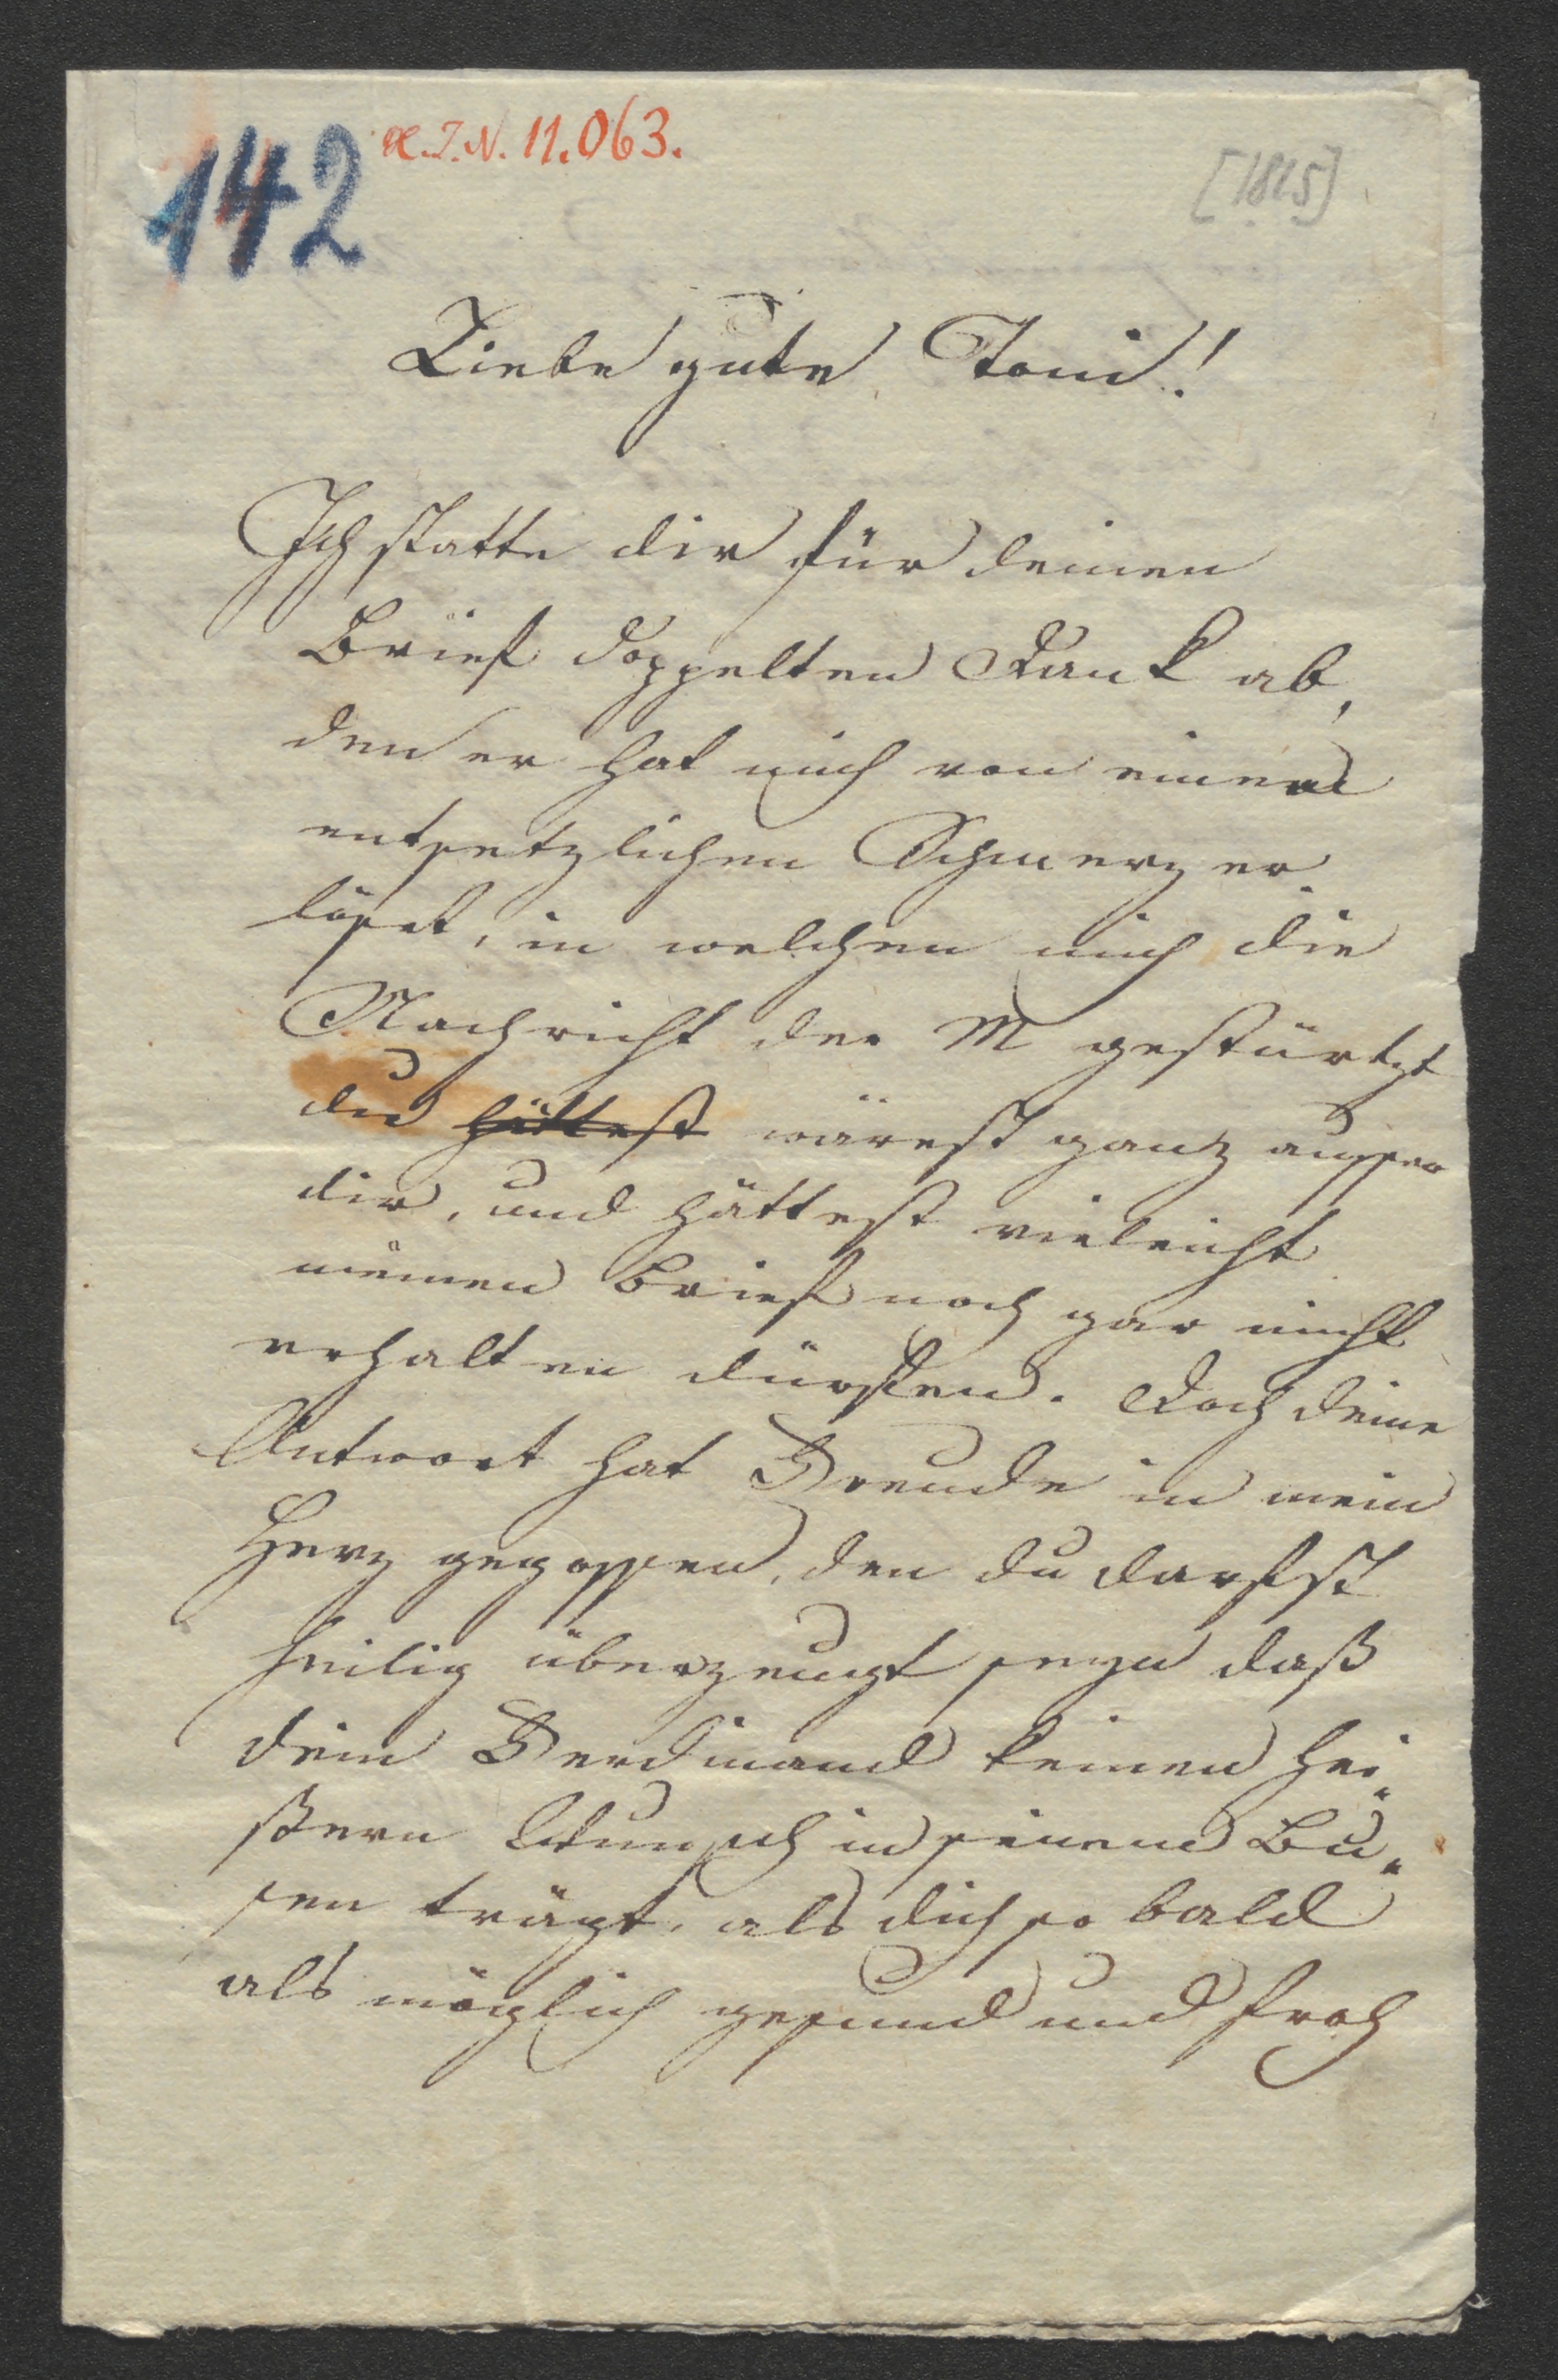 142
H.I.N. 11.063.
[1825]
Liebe gute Toni!
Ich statte dir für deinen
Brief doppelten Dank ab,
den er hat mich von einem
entsetzlichen Schmerz er
löset, in welchen mich die
Nachricht der M gestürtzt
du hättest wärest ganz ausser
dir, und hättest vieleicht
meinen Brief noch gar nicht
erhalten dürfen. Doch deine
Antwort hat Freude in mein
Herz gegossen, den du darfst
heilig überzeugt seyn daß
dein Ferdinand keinen hei„
ßern Wunsch in seinem Bu„
sen trägt, als dich so bald
als möglich gesund und froh